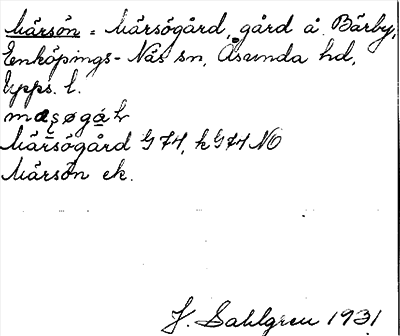 Märsön = Märsögård, gård å Bärby,
Enköpings-Näs sn, Åsunda hd,
Upps. l.
Märsögård G74, k G74 NO
Märsön ek.
J. Sahlgren 1931